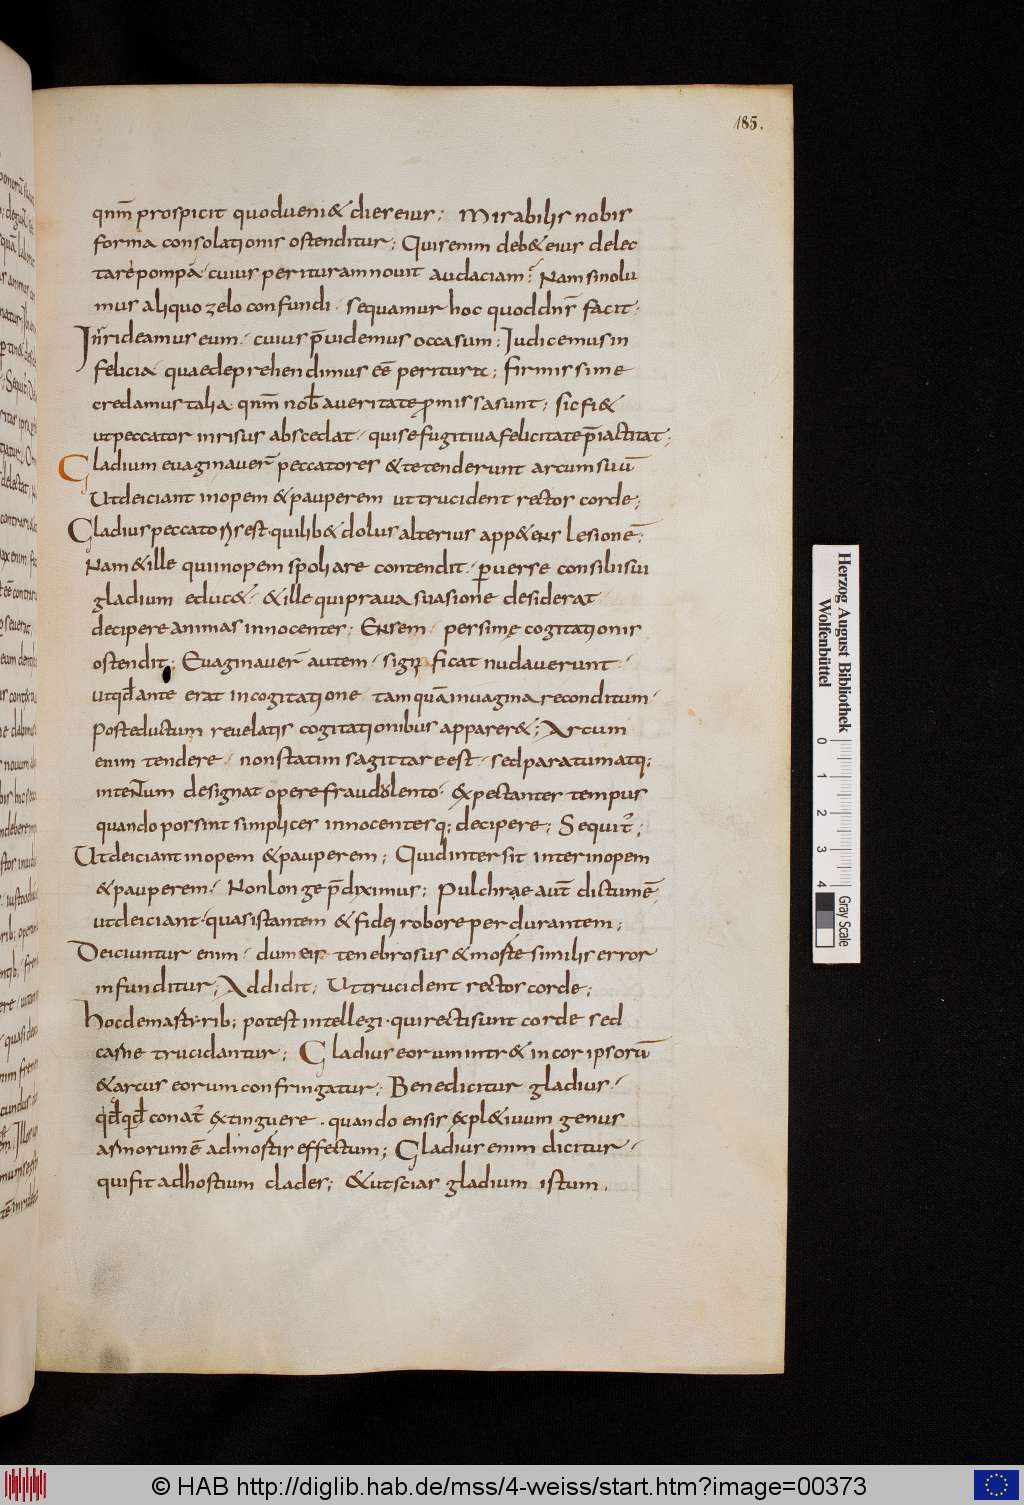 185.
qnm̄ prospicit quodueni& dies eius; Mirabilis nobis
forma consolationis ostenditur; Quis enim deb& eius delec
tare pompa᷉· cuius perituram nouit audaciam; Nam sinolu
mus aliquo zelo confundi· sequamur hoc quod dn̄s facit;
Inrideamus eum· cuius p̄uidemus occasum; Iudicemus in
felicia quae deprehendimus ēē peritura; firmissime
credamus talia· qnm̄ nob̄ a ueritate promissa sunt; sic fi&
ut peccator inrisus abscedat· qui se fugitiua felicitate p̄iactitat;
Gladium euaginauer̄ peccatores & tetenderunt arcum suū
Ut deiciant inopem & pauperem ut trucident rectos corde;
Gladius peccatorum est· quilib& dolus alterius app&ens lesionē;
Nam & ille qui inopem spoliare contendit· peruerse consilii sui
gladium educ&· & ille qui praua suasione desiderat
decipere animas innocentes; Ensem· pessimę cogitationis
ostendit; Euaginauer̄ autem· significat nudauerunt·
ut qd̄ ante erat in cogitatione tamquā in uagina reconditum·
Post eductum reuelatis cogitationibus apparer&; Arcum
enim tendere· non statim sagittare est· sed paratum atq;
intentum designat opere fraudolento· &pectantes tempus
quando possint simplices innocentesq; decipere; Sequit᷉;
Ut deiciant inopem & pauperem; Quid intersit inter inopem
& pauperem· Non longe p̄diximus; Pulchrae aut̄ dictum ē
ut deiciant· quasi stantem & fidei robore perdurantem;
Deiciuntur enim· dum eis tenebrosus & in oste similis error
infunditur; Addidit; Ut trucident rectos corde;
hoc de martirib; potest intellegi· qui recti sunt corde sed
carne trucidantur; Gladius eorum intr& in cor ipsorū
& arcus eorum confringatur; Benedicitur gladius·
qd̄ qd̄ conat᷉ &tinguere· quando ensis &pl& iuum genus
armorum ē ad mortis effectum; Gladius enim dicitur·
qui fit ad hostium clades; & ut scias gladium istum·
Herzog August Bibliothek
Wolfenbüttel
0 1 2 3 4
Gray Scale
© HAB http://diglib.hab.de/mss/4-weiss/start.htm?image=00373